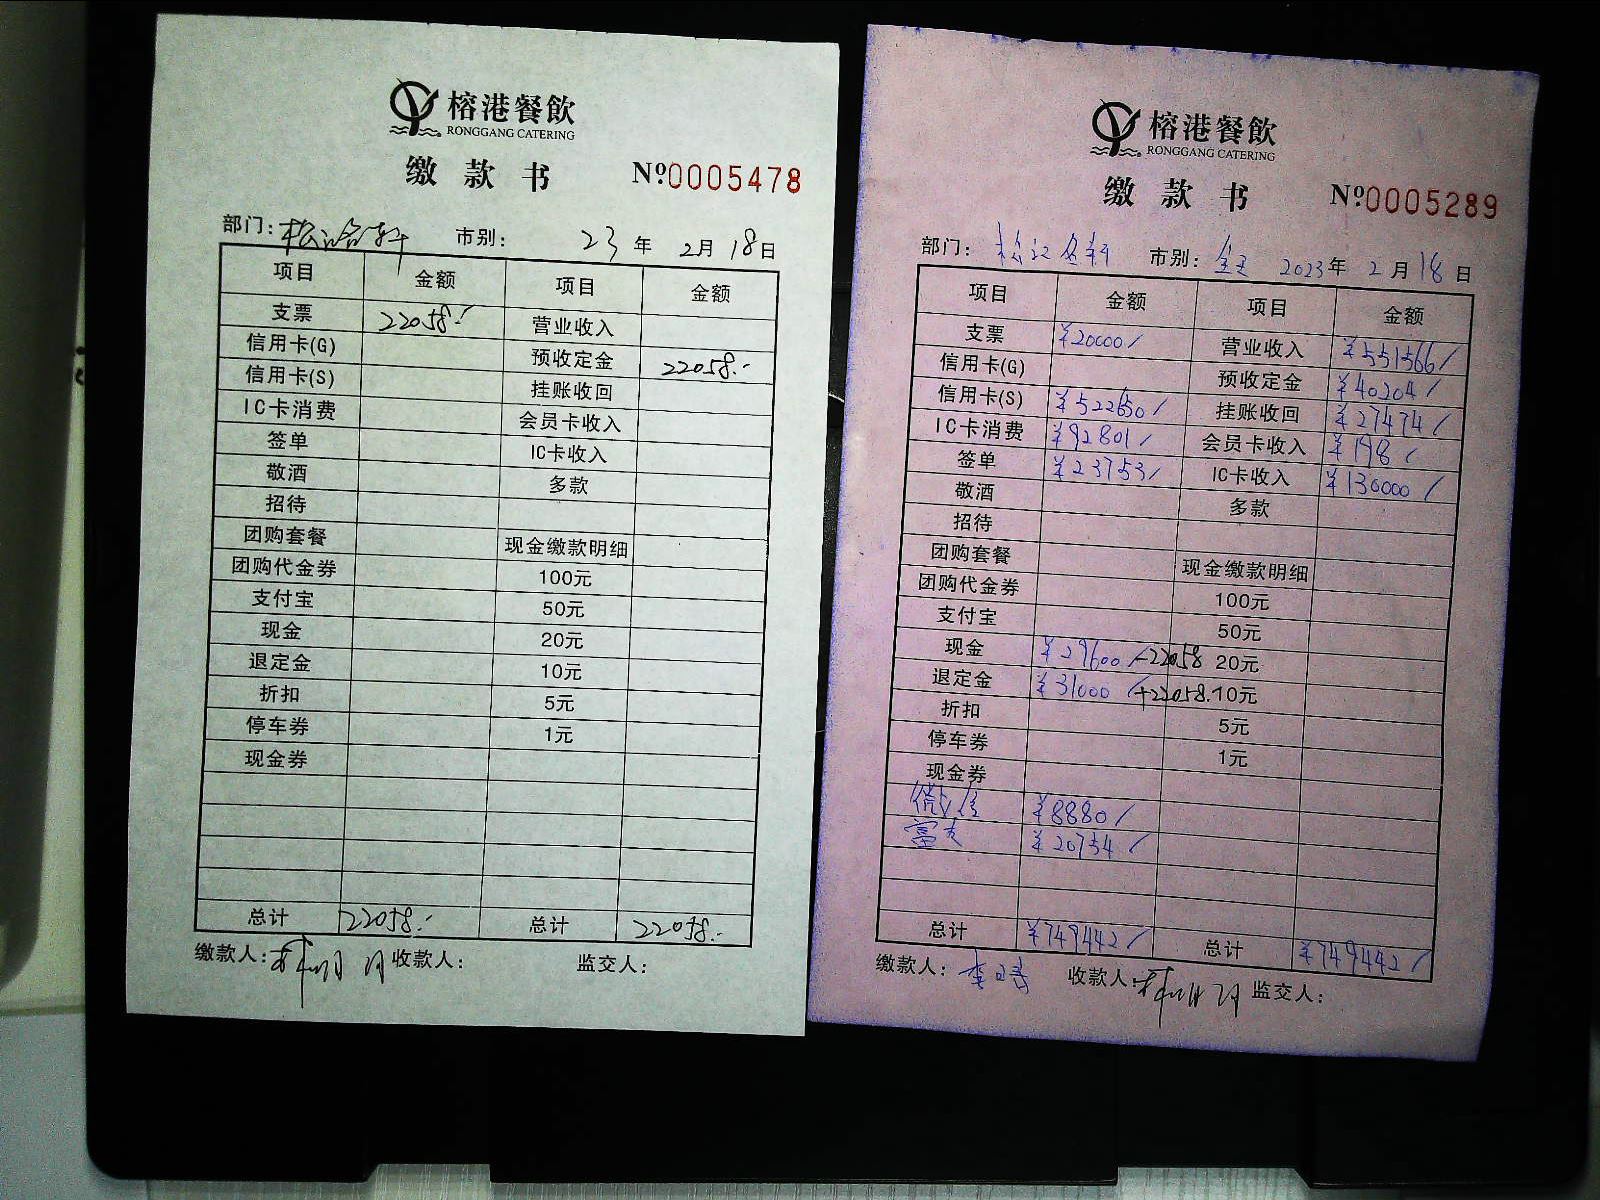 榕港餐飲
RONGGANG CATERING
缴款书 №0005478
部门: 市别: 23年 2月 18日
项目 金额 项目 金额
支票 22058.- 营业收入
信用卡(G) 预收定金 22058.-
信用卡(S) 挂账收回
IC卡消费 会员卡收入
签单 IC卡收入
敬酒 多款
招待
团购套餐 现金缴款明细
团购代金券 100元
支付宝 50元
现金 20元
退定金 10元
折扣 5元
停车券 1元
现金券
总计 22058.- 总计 22058.-
缴款人: 收款人: 监交人:
榕港餐飲
RONGGANG CATERING
缴款书 №0005289
部门: 市别: 2023年 2月 18日
项目 金额 项目 金额
支票 ¥20000/ 营业收入 ¥551566/
信用卡(G) 预收定金 ¥40204/
信用卡(S) ¥522650/ 挂账收回 ¥27474/
IC卡消费 ¥92801/ 会员卡收入 ¥198/
签单 ¥23753/ IC卡收入 ¥130000/
敬酒 多款
招待
团购套餐 现金缴款明细
团购代金券 100元
支付宝 50元
现金 ¥29600/-22058 20元
退定金 ¥31000/+22058. 10元
折扣 5元
停车券 1元
现金券
微信 ¥8880/
富友 ¥20754/
总计 ¥749442/ 总计 ¥749442/
缴款人: 收款人: 监交人: